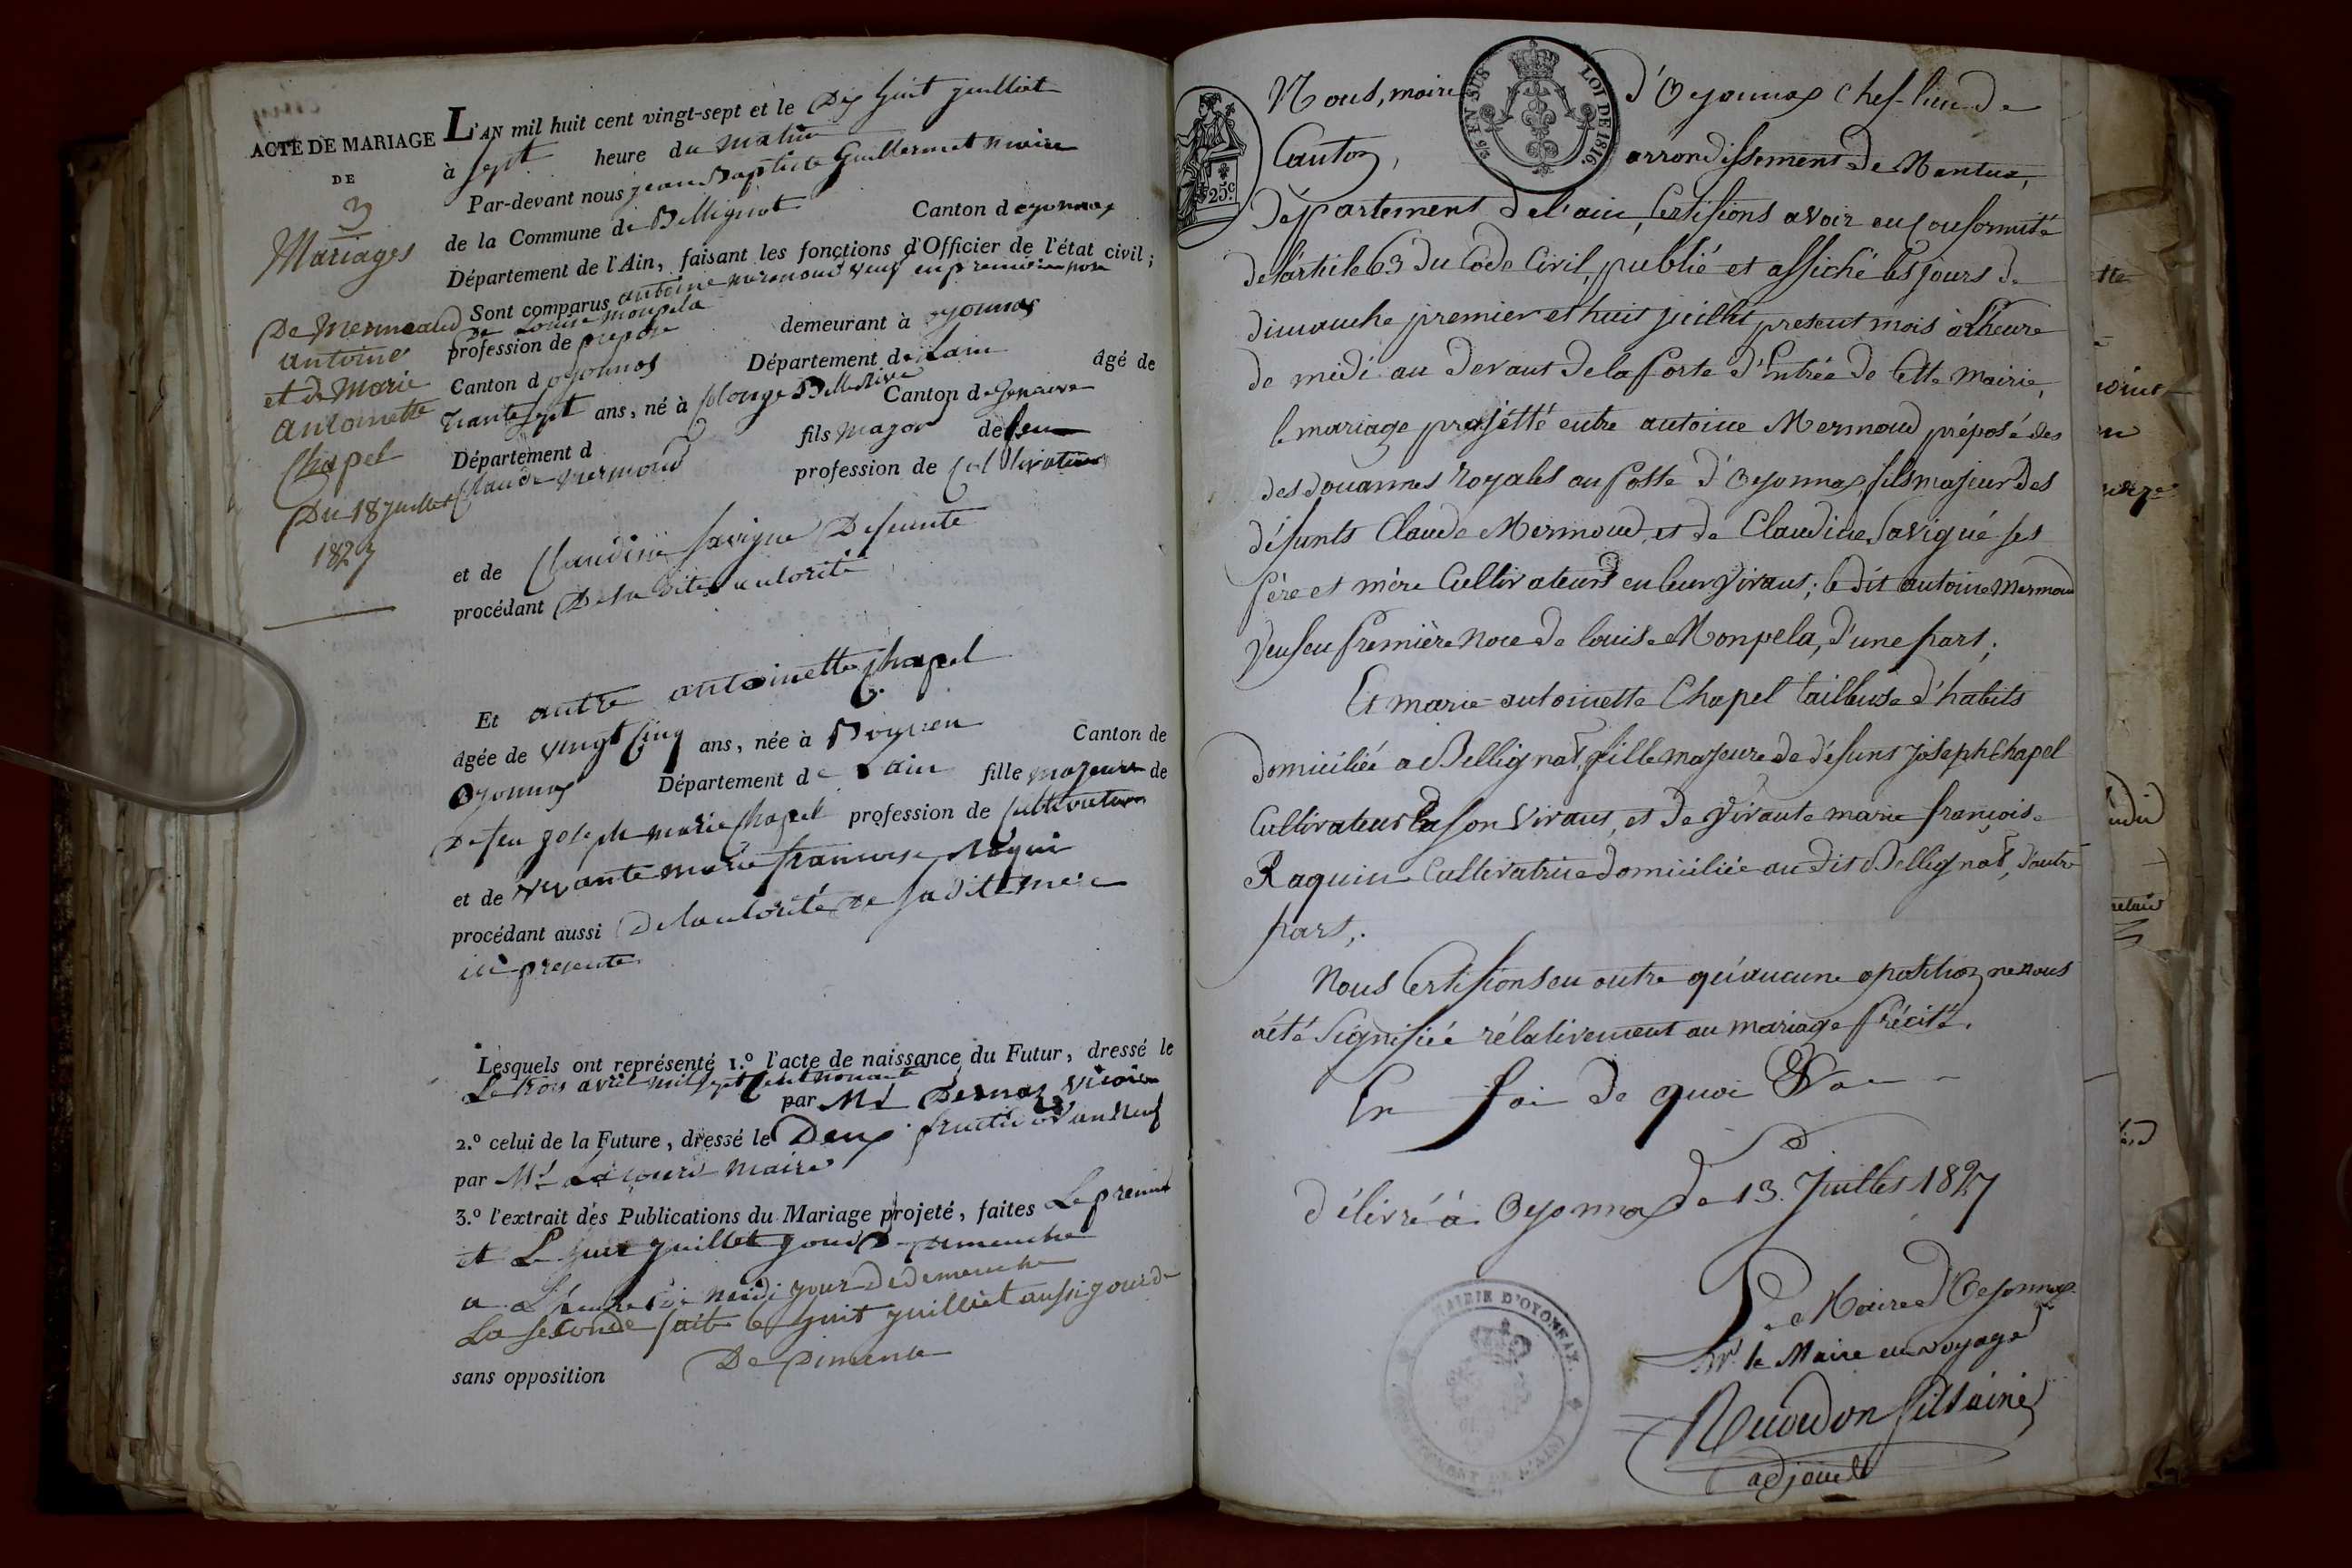 ACTE DE MARIAGE
DE
3
Mariages
De Mermoud
antoine
et de Marie
antoinette
Chapel
Du 18 Juillet
1827
L'AN mil huit cent vingt-sept et le Dix huit juilliet
à sept heure du matin
Par-devant nous jean Baptiste Guillermet maire
de la Commune de Bellignat Canton d oyonnax
Département de l'Ain, faisant les fonctions d'Officier de l'état civil;
Sont comparus antoine mermoud veuf en premiere nose
De Louise monpela
profession de prepose demeurant à oyonnax
Canton d oyonnax Département de Lain âgé de
trante sept ans, né à Colonge Bellerive Canton de Geneve
Département d fils major de feu
Claude mermoud profession de Cultivateur
et de Claudine savigne Defeunte
procédant De sa dite autorité
Et autre antoinette Chapel
âgée de vingt Cinq ans, née à Canton de
Oyonnax Département de Lain fille majeure de
Defeu joseph marie Chapel profession de Cultivateur
et de vivante marie francoise Raquin
procédant aussi De lautorité de sa dite mere
ici presente
Lesquels ont représenté 1.° l'acte de naissance du Futur, dressé le
Le trois avril mil sept Cent nonante
par Mr Dernaz vicaire
2.° celui de la Future, dressé le Deux fructidor an neuf
par Mr maire
3.° l'extrait des Publications du Mariage projeté, faites Le premier
et Le huit juillet jour De Dimanche
a L'heure De midi jour De demanche
La seconde faite le huit juilliet aussi jour de
sans opposition De Dimanche
3/5 EN SUS
LOI DE 1816.
25c.
Nous, maire d'Oyonnax chef-lieu de
Canton, arrondissement de Nantua,
département de l'ain, Certifions avoir en conformité
de l'article 63 du Code Civil, publié et affiché les jours de
dimanche premier et huit juillet present mois à l'heure
de midi au devant de la porte d'Entrée de Cette Mairie,
le mariage projetté entre antoine Mermoud préposé des
des douannes royales au poste d'Oyonnax, fils majeur des
défunts Claude Mermoud, et de Claudine Savigné ses
père et mère Cultivateurs en leur vivant; le dit antoine Mermoud
veuf en première noce de louise Monpela, d'une part;
Et marie-antoinette Chapel tailleuse d'habits
domiciliée a Bellignat, fille majeure de défunt joseph Chapel
Cultivateur en son vivant, et de vivante marie françoise
Raquin Cultivatrice domiciliée au dit Bellignat, d'autre
part,.
Nous Certifions en outre qu'aucune oposition ne nous
a été signifiée rélativement au mariage précité.
En foi de quoi
délivré à Oyonnax le 13 Juillet 1827
Le Maire d'Oyonnax
Mr le Maire en voyage
fils ainé
adjoint
MAIRIE D'OYONNAX.
DÉPARTEMENT DE L'AIN